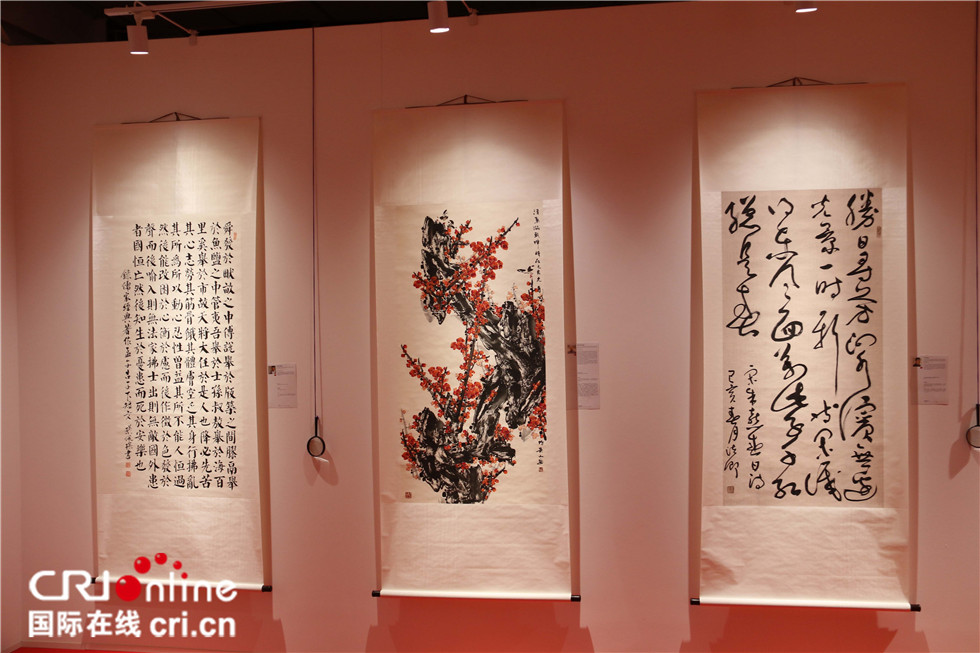 舜發於畎畝之中傅說舉於版築之間膠鬲舉
於魚鹽之中管夷吾舉於士孫叔敖舉於海百
里奚舉於市故天將大任於是人也降必先苦
其心志勞其筋骨餓其體膚空乏其身行拂亂
其所為所以動心忍性曾益其所不能人恒過
然後能改困於心衡於慮而後作徵於色發於
聲而後喻入則無法家拂士出則無敵國外患
者國恒亡然後知生於憂患而死於安樂也
錄儒家經典著作孟子
勝日尋芳泗水濱無邊
光景一時新等閒識
得東風面萬紫千紅
總是春
宋朱熹春日詩
己亥春月
CRI online
国际在线 cri.cn